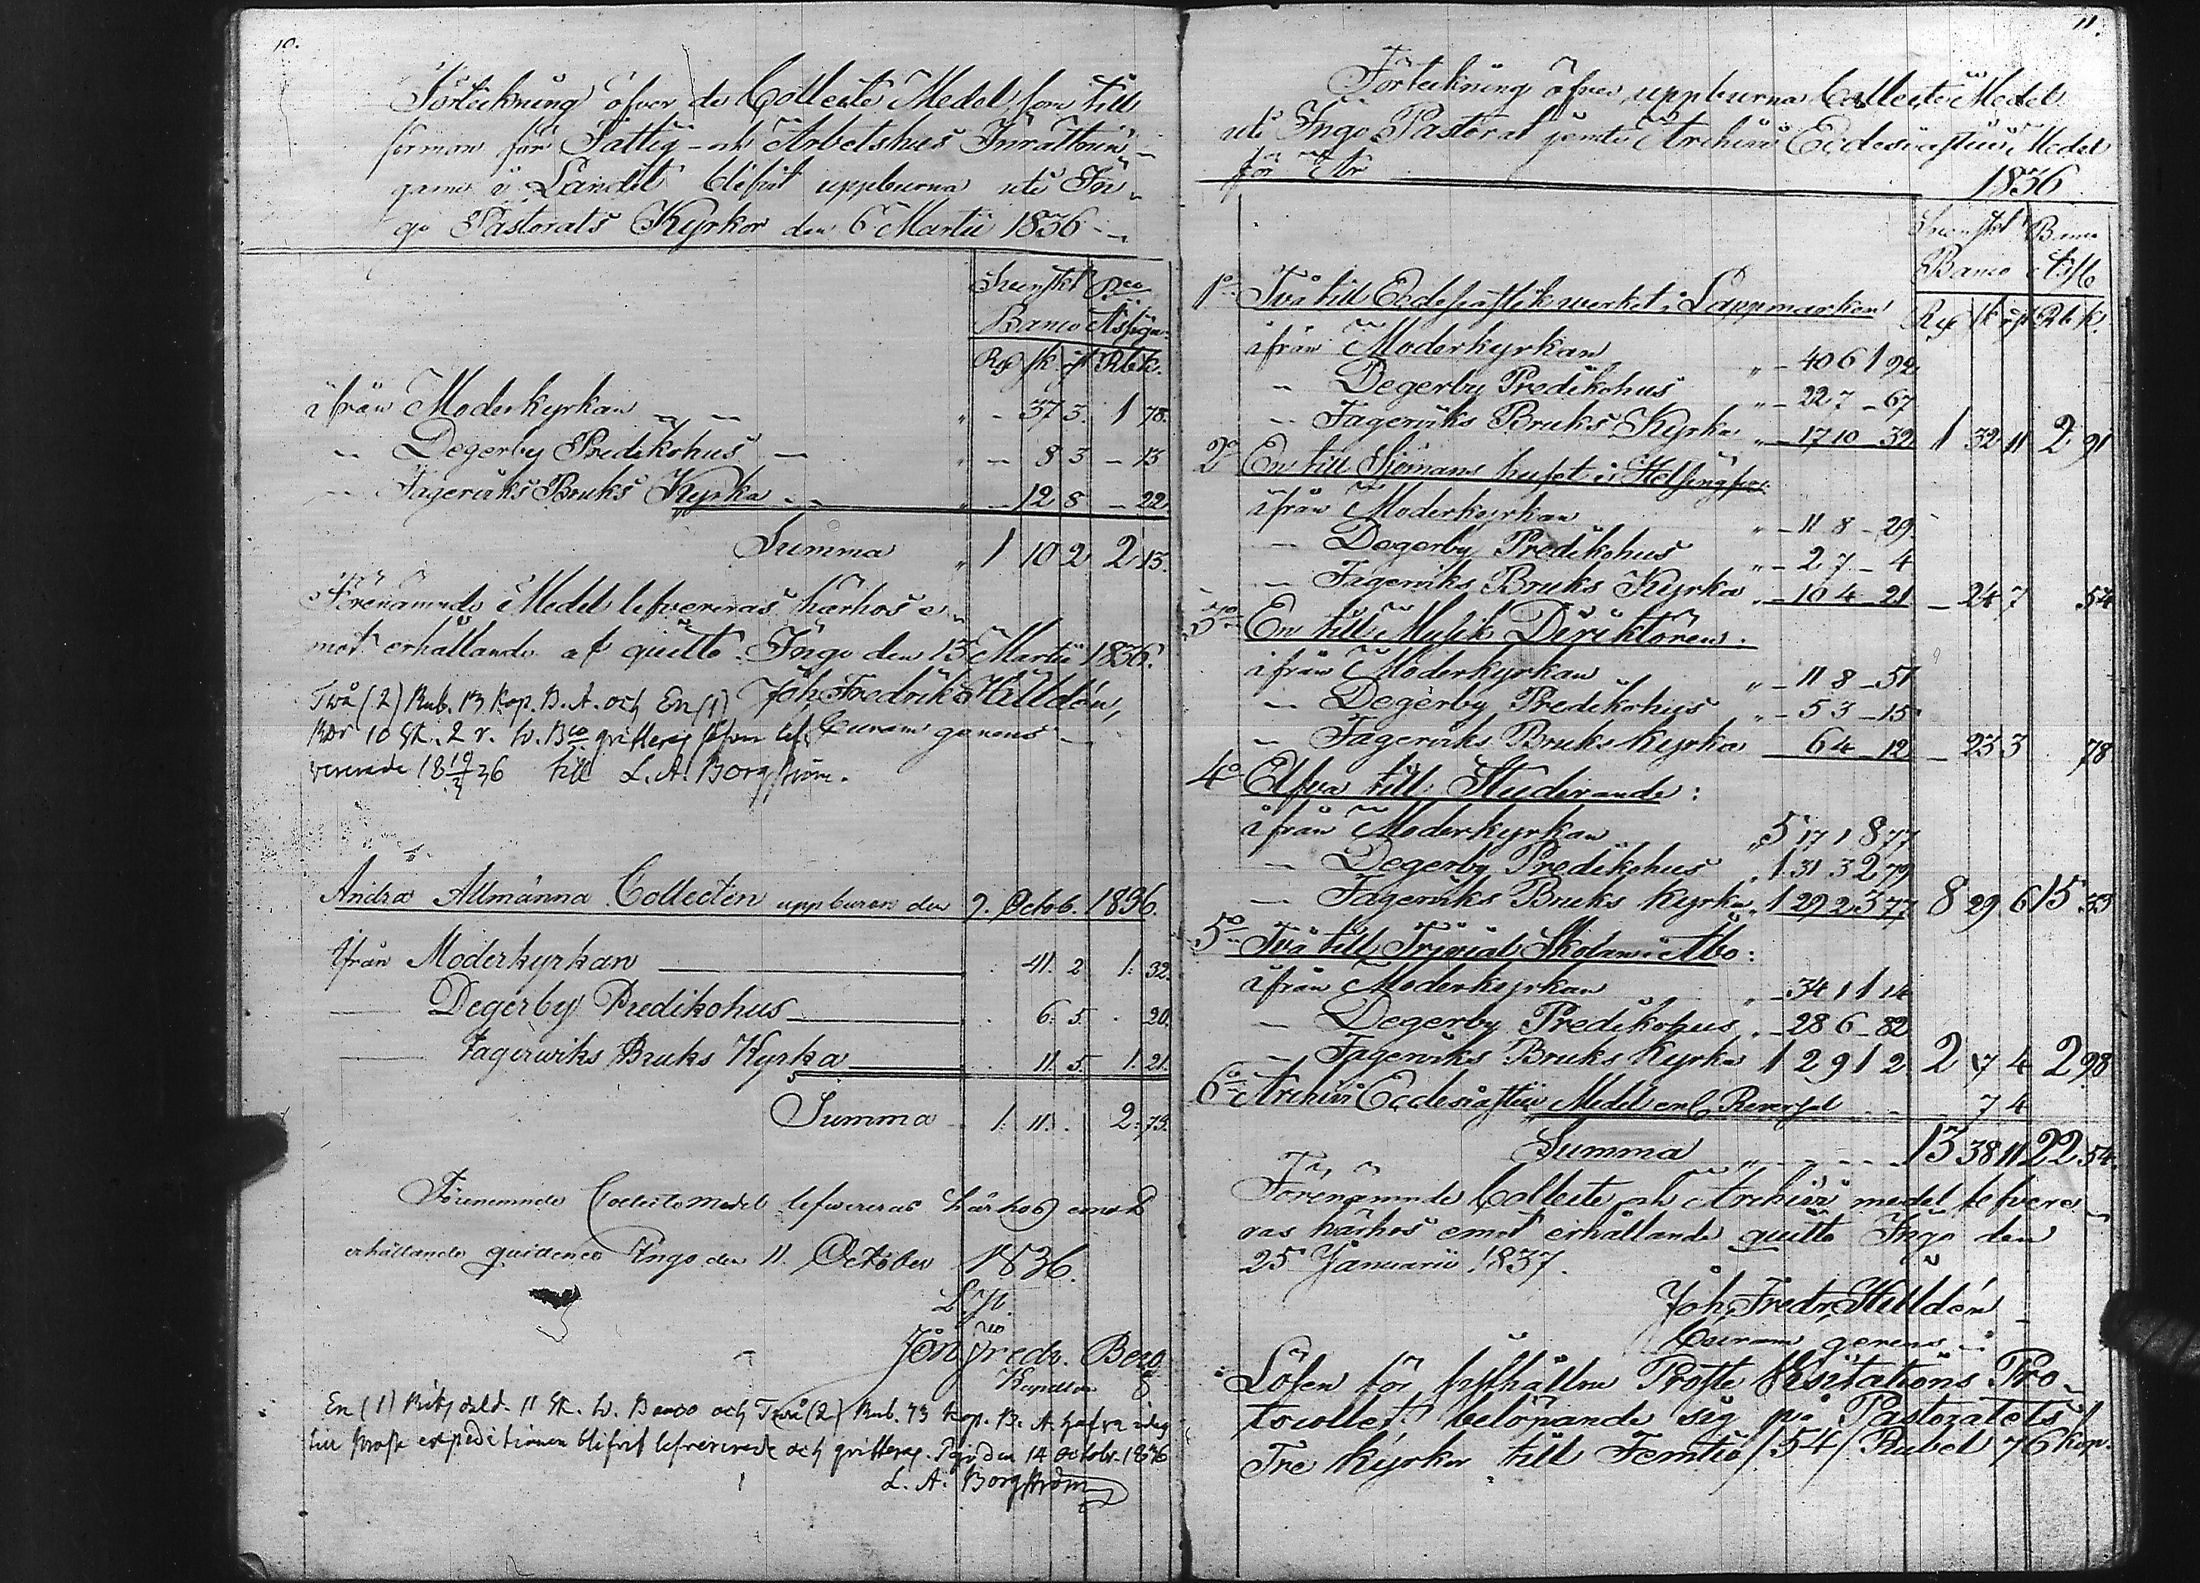 10.
Förteckning öfver de Collecte Medel som till
förmon för Fattig- och Arbetshus Inrättnin-
garne i Landet blifvit uppburna uti In-
go Pastorats Kyrkor den 6 Martii 1836
Svenskt Bco
Banco Assign.
R sk rst Rb k.
ifrån Moderkyrkan " - 37 3. 1 78.
" Degerby Predikohus " - 8 3 - 13
" Fagerviks Bruks Kyrka " - 12 8 - 22.
Summa " 1 10 2 2 13.
Förenämnde Medel lefvereras härhos e-
mot erhållande af quitto. Ingo den 13 Martii 1836.
Joh. Fredrik Hilldén,
Curam gerens
Två (2) Rub. 13 Kop. B.A. och En (1)
Rdr 10 sk. 2 r. Sv. Bco qvitteras såsom lef-
vererade 18 19/3 36 till L. A. Borgström.
Andra Allmänna Collecten uppburen den 9. Octob. 1836.
Ifrån Moderkyrkan 41. 2 1. 32.
Degerby Predikohus 6. 5. 20.
Fagerwiks Bruks Kyrka 11. 5. 1. 21.
Summa 1. 11. 2. 73.
Förenemnde Collecte medel lefwereras härhos emot
erhållande quittence Ingo den 11. October 1836.
Joh Fredr. Berg
Kapellan
En (1) Riksdald. 11 Sk. Sv. Banco och Två (2) Rub. 73 Kop. B. A. hafva idag
till Prosts expeditionen blifvit lefvererade och qvitteras. den 14 Octobr. 1836
L. A. Borgström
11.
Förteckning öfver uppburna Collecte Medel
uti Ingo Pastorat jemte Archivi Ecclesiastici Medel
för År 1836
Svenskt Banco
Banco Ass
R sk rst Rb k.
1o Två till Ecclesiastik werket i Lappmarken
ifrån Moderkyrkan " - 40 6 1 92
" Degerby Predikohus " - 22 7 - 67
" Fagerviks Bruks Kyrka " - 17 10 - 32 1 32 11 2 91
2o En till Sjömans huset i Helsingfors
ifrån Moderkyrkan " - 11 8 - 29
- Degerby Predikohus " - 2 7 - 4
- Fagerviks Bruks Kyrka " - 10 4 - 21 - 24 7 54
3o En till Musik Direktören:
ifrån Moderkyrkan " - 11 8 - 51
- Degerby Predikohus " - 5 3 - 15
- Fagerviks Bruks Kyrka - 6 4 - 12 - 23 3 78
4o Elfva till Studerande:
ifrån Moderkyrkan " 5 17 1 8 77
- Degerby Predikohus " 1 31 3 2 79
- Fagerviks Bruks Kyrka " 1 29 2 3 77 8 29 6 15 33
5o Två till Trivial Skolan i Åbo:
ifrån Moderkyrkan " - 34 1 1 14
- Degerby Predikohus " - 28 6 - 82
- Fagerviks Bruks Kyrka 1 2 9 1 2 2 17 4 2 98
6o Archivi Ecclesiastici Medel enl. Reversal - 7 4
Summa " 13 38 11 22 54.
Förenämnde Collecte och Archivi medel lefvere-
ras härhos emot erhållande quitto Ingo den
25 Januarii 1837.
Joh. Fredr. Hilldén
Curam gerens
Lösen för Prosts Visitations Pro-
tocollet belöpande sig på Pastoratets
Tre Kyrkor till Femtio /54/ Rubel 76 kop.